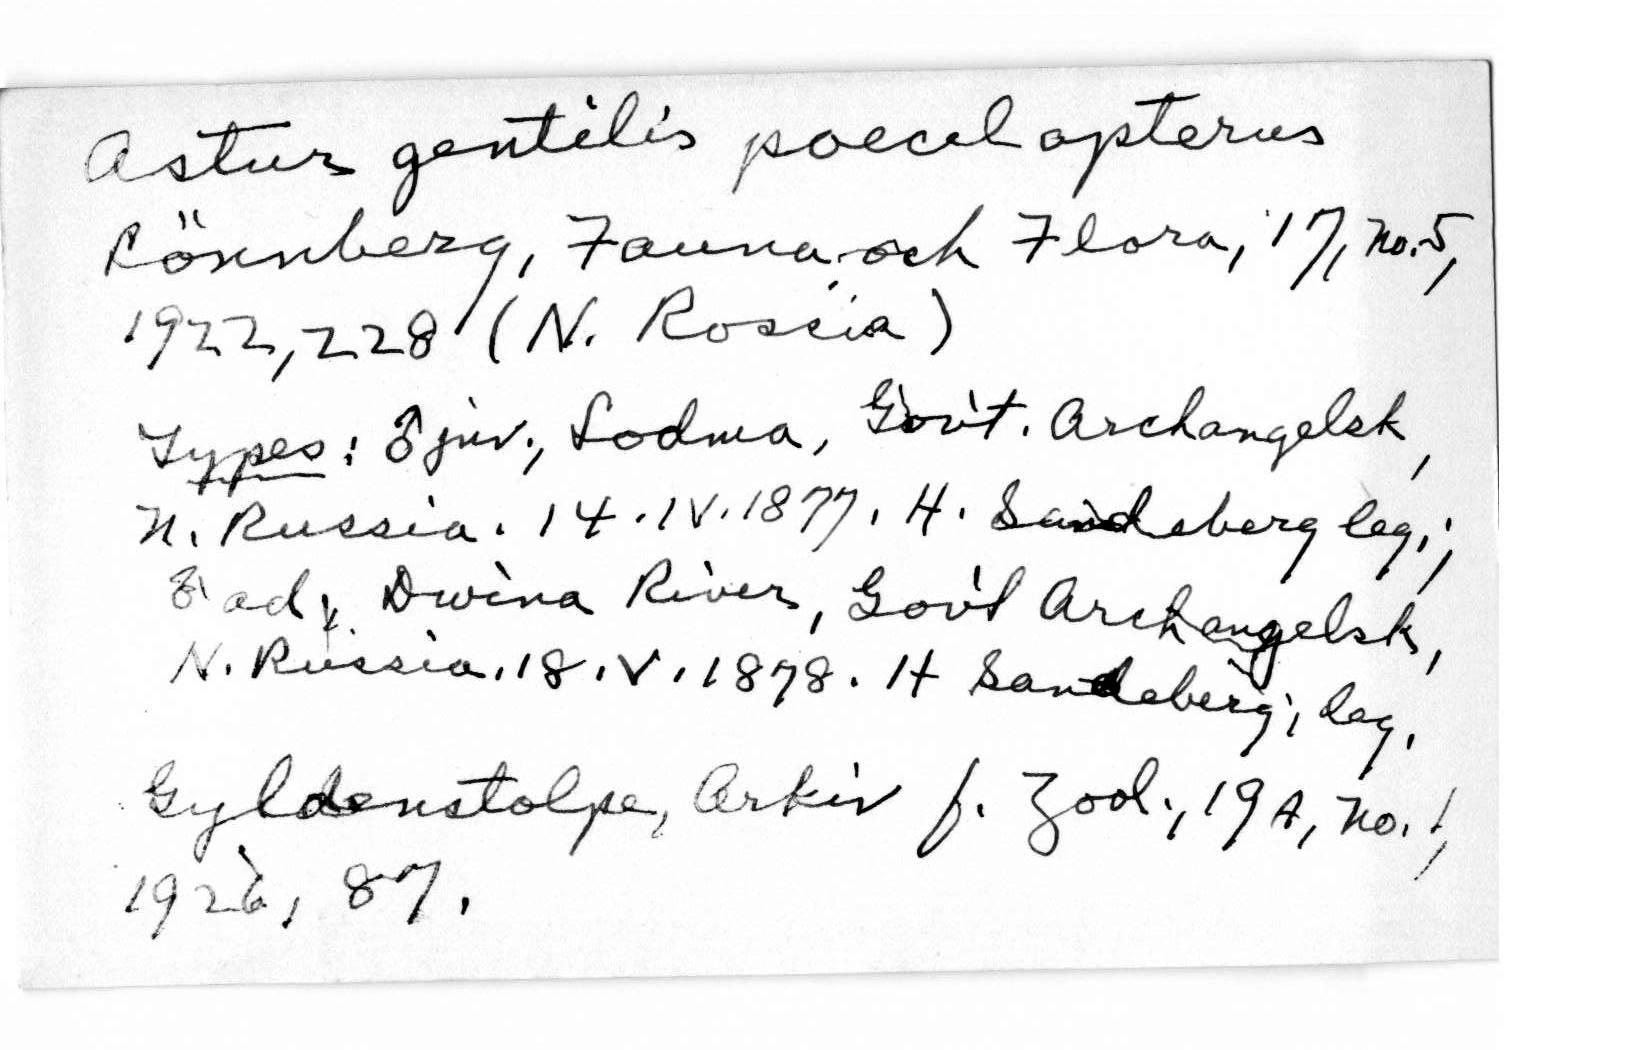 Astur gentilis poecilopterus
Lönnberg, Fauna och Flora, 17, no. 5,
1922, 228 (N. Rossia)
Types: ♂ juv., Sodma, Gov't. Archangelsk,
N. Russia. 14.IV.1877. H. Sandeberg leg.;
♂ ad., Dwina River, Gov't Archangelsk,
N. Russia. 18.V.1878. H Sandeberg, leg.
Gyldenstolpe, Arkiv f. Zool., 19A, no. 1,
1926, 87.